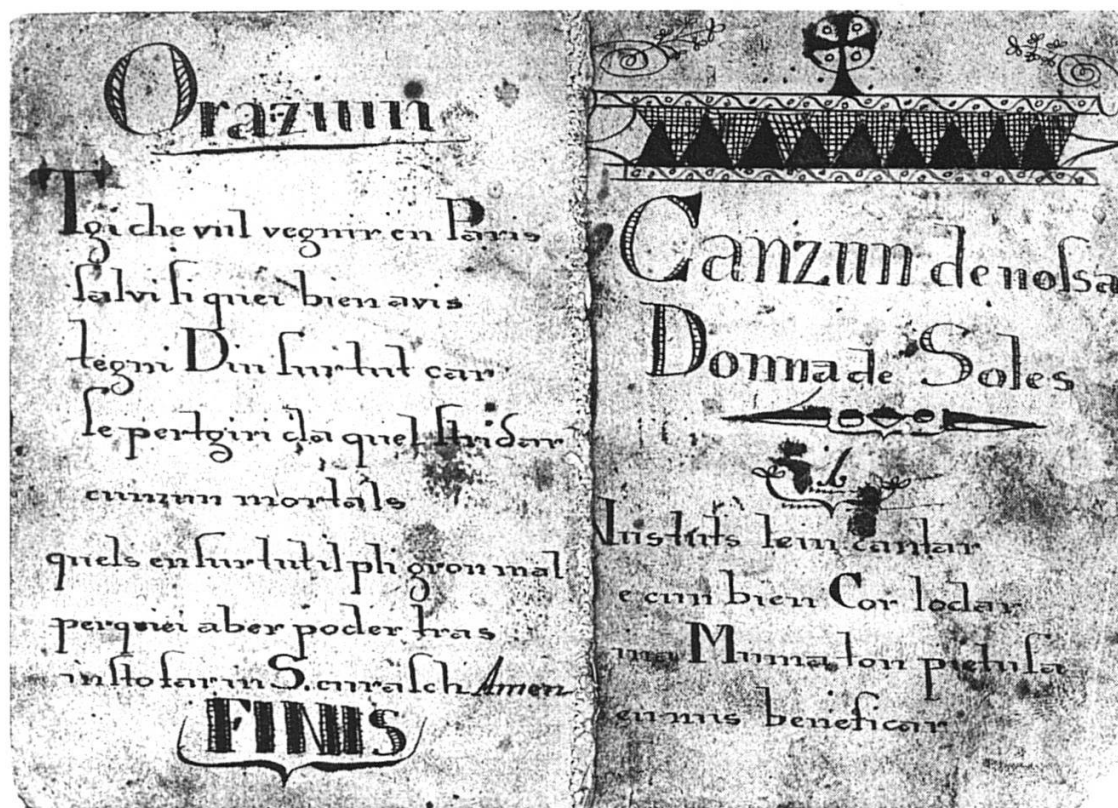 Orazuin
Tgi che vul vegnir en Paris
salvi si quei bien avis
tegni Diu surtut car
se pertgiri da quel stridar
cunzun mortals
quels en surtut il pli gron mal
perquei aber poder tras
in sto far in S. curasch Amen
FINIS
Canzun de nossa
Donna de Soles
1.
Nus tuts lein cantar
e cun bien Cor lodar
ina Muma ton pietusa
en nus beneficar